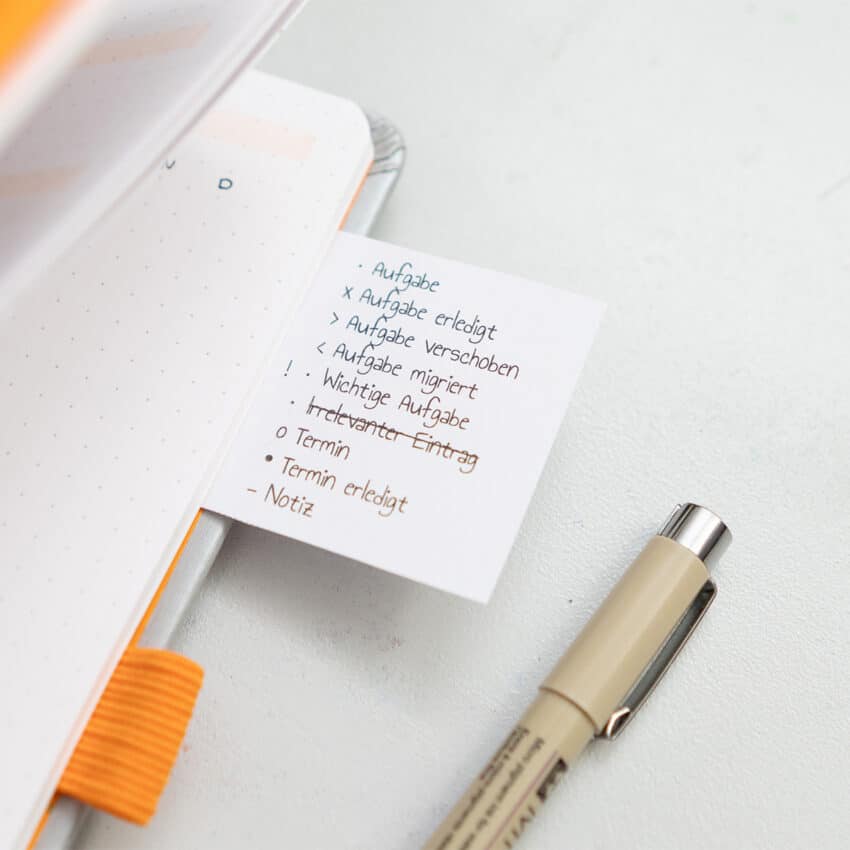 D
· Aufgabe
x Aufgabe erledigt
> Aufgabe verschoben
< Aufgabe migriert
! · Wichtige Aufgabe
· Irrelevanter Eintrag
o Termin
• Termin erledigt
– Notiz
Micro pigment ink for